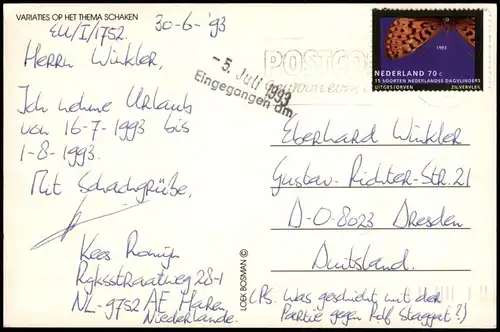 VARIATIES OP HET THEMA SCHAKEN
EU/I/1752.
30-6-'93
Herrn Winkler,
Ich nehme Urlaub
von 16-7-1993 bis
1-8-1993.
Mit Schachgrüße,
Kees Romijn
Rijksstraatweg 28-1
NL-9752 AE Haren
Niederlande.
LOEK BOSMAN ©
POSTCO
- 5. Juli 1993
Eingegangen am:
1993
NEDERLAND 70 c
15 SOORTEN NEDERLANDSE DAGVLINDERS
UITGESTORVEN ZILVERVLEK
Eberhard Winkler
Gustav-Richter-Str. 21
D-O-8023 Dresden
Duitsland.
(PS. Was geschicht mit der
Partie gegen Rolf Staggat?)